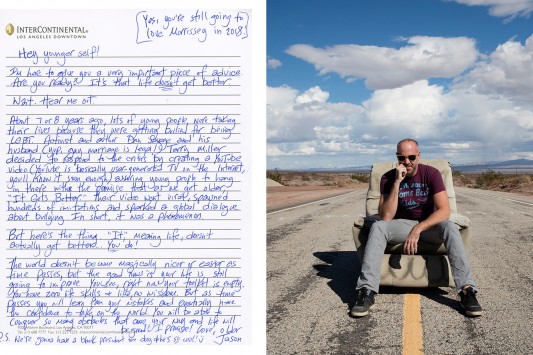 INTERCONTINENTAL®
LOS ANGELES DOWNTOWN
[Yes, you're still going to
love Morrissey in 2018]
Hey younger self!
I'm here to give you a very important piece of advice.
Are you ready? It's that life doesn't get better.
Wait. Hear me out.
About 7 or 8 years ago, lots of young people were taking
their lives because they were getting bullied for being
LGBT. Activist and author Dan Savage and his
husband (yup, gay marriage is legal!) Terry Miller
decided to respond to the crisis by creating a YouTube
video (YouTube is basically user-generated TV on the Internet,
you'll know it soon enough) asking young people to hang
in there with the promise that as we get older,
"It Gets Better." Their video went viral, spawned
hundreds of imitations and sparked a global dialogue
about bullying. In short, it was a phenomenon.
But here's the thing. "It," meaning life, doesn't
actually get better... You do!
The world doesn't become magically nicer or easier as
time passes, but the good news is your life is still
going to improve. You see, right now your toolkit is empty.
You have zero life skills & like, no wisdom. But as time
passes you will learn from our mistakes and eventually have
the confidence to take on the world. You will be able to
conquer so many obstacles that come your way and life will
beyond! I promise! Love, older
Jason
P.S. We're gonna have a black president for